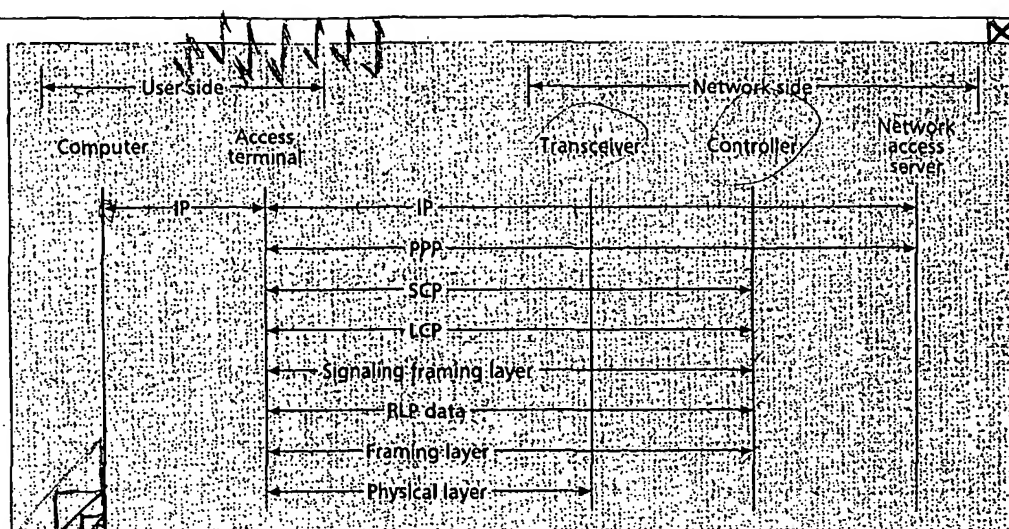 User side
Network side
Computer
Access
terminal
Transceiver
Controller
Network
access
server
IP
IP
PPP
SCP
LCP
Signaling framing layer
RLP data
Framing layer
Physical layer